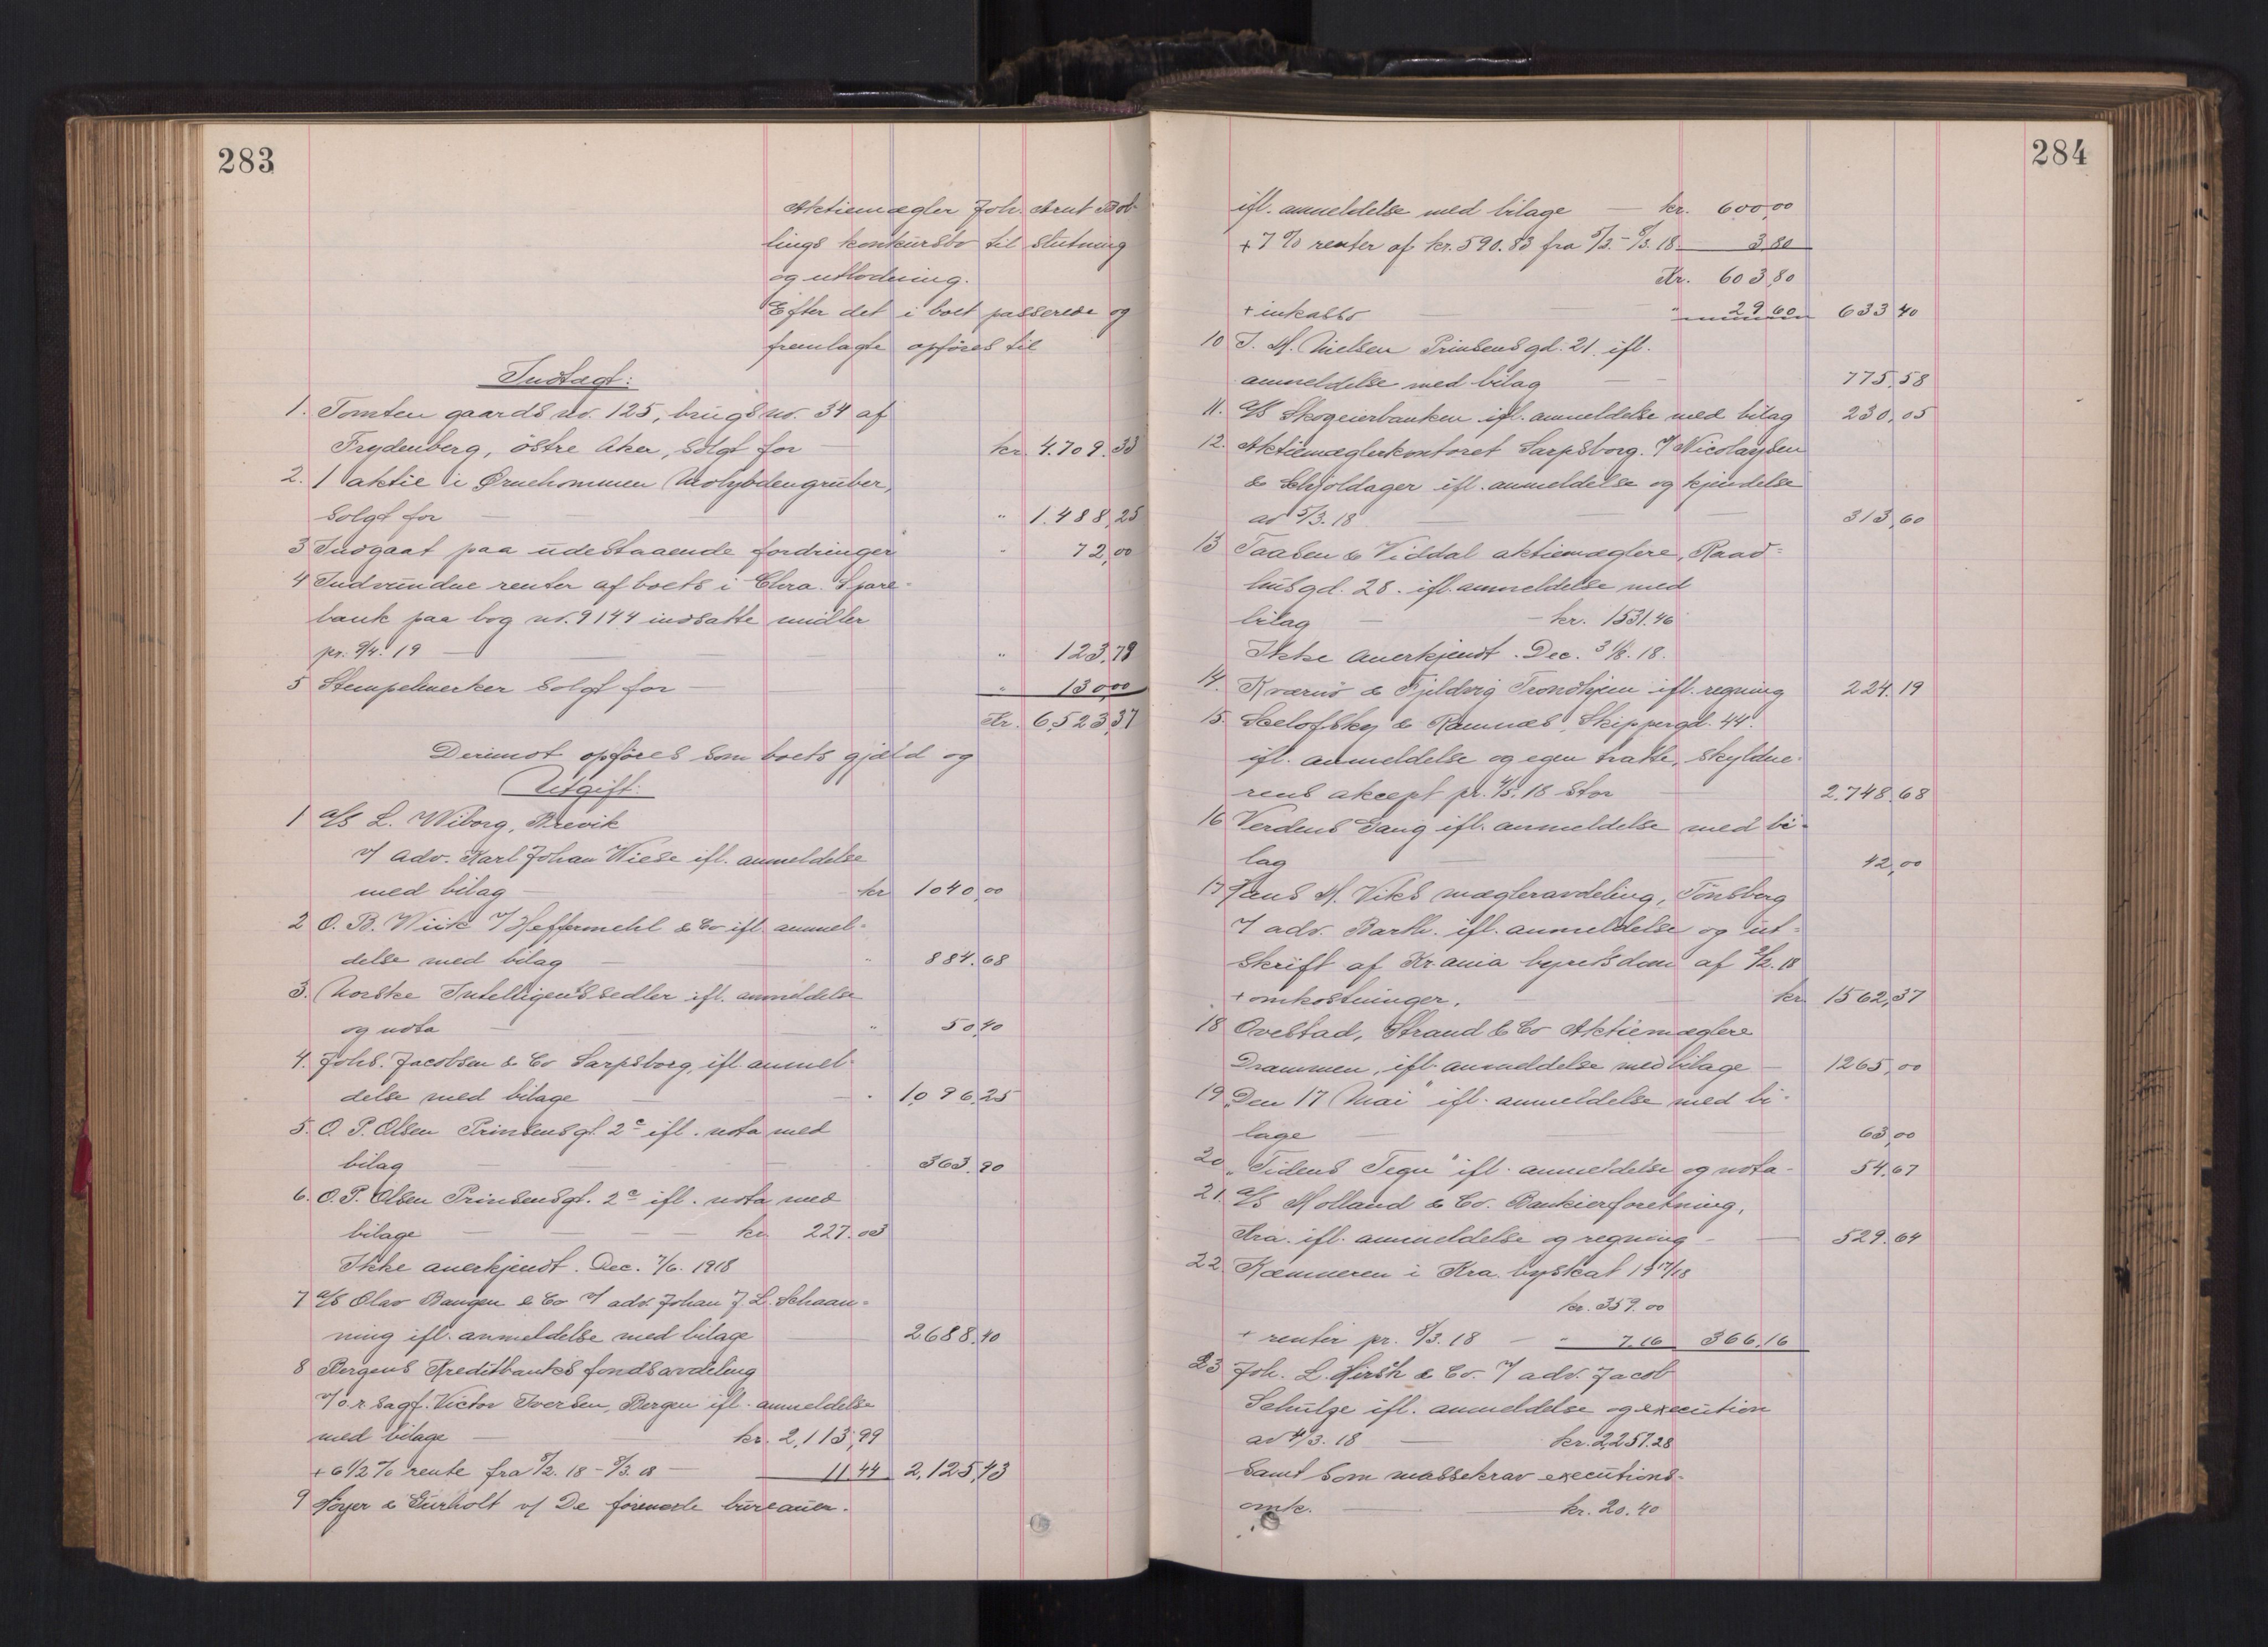 283
Aktiemægler Joh. Arnt Bob-
lings konkursbo til slutning
og utlodning.
Efter det i boet passerede og
fremlagte opføres til
Indtægt:
1. Tomten gaards no. 125, brugs no. 34 af
Frydenberg, östre Aker, solgt for — kr. 4.709.33
2. 1 aktie i Ørnehommen Molybdengruber,
solgt for — " 1.488,25
3 Indgaat paa udestaaende fordringer " 72,00
4 Indvundne renter af boets i Chra. Spare-
bank paa bog no. 9144 indsatte midler
pr. 9/4. 19 — " 123,79
5 Stempelmerker solgt for — " 130,00
Kr. 6,523,37
Derimot opføres som boets gjæld og
Utgift:
1 A/S L. Wiborg, Brevik
v/ adv. Karl Johan Wiese ifl. anmeldelse
med bilag — kr 1040,00
2 O. B. Wiik v/ Heffermehl & Co ifl. anmel-
delse med bilag — " 884.68
3. Norske Intelligentssedler ifl. anmeldelse
og nota — " 50,40
4. Johs. Jacobsen & Co Sarpsborg, ifl. anmel-
delse med bilage — " 1,096,25
5. O. P. Olsen Prinsensgt. 2c ifl. nota med
bilag — 363.90
6. O. P. Olsen Prinsensgt. 2c ifl. nota med
bilage — kr. 227.03
Ikke anerkjendt. Dec. 7/6. 1918
7 A/S Olav Bangen & Co v/ adv. Johan J. L. Schaan-
ning ifl. anmeldelse med bilage — 2688,40
8 Bergens Kreditbanks fondsavdeling
v/ o.r.sagf. Victor Iversen, Bergen ifl. anmeldelse
med bilage — kr. 2,113,99
+ 6 1/2 % rente fra 5/2. 18 - 5/3. 18 — 11.44 2,125,43
9 Høyer & Gurholt v/ De forenede bureauer.
284
ifl. anmeldelse med bilage — kr. 600,00
+ 7 % renter af kr. 590.83 fra 5/2. - 5/3. 18 — 3,80
Kr. 603,80
+ inkasso — " 29,60 633,40
10 J. M. Nielsen Prinsensgd. 21 ifl.
anmeldelse med bilag — 775,58
11. A/S Skogeierbanken ifl. anmeldelse med bilag 230,05
12. Aktiemæglerkontoret Sarpsborg. v/ Nicolaysen
& Schjoldager ifl. anmeldelse og kjendelse
av 5/3. 18 — 313,60
13 Taasen & Viddal aktiemæglere, Raad-
husgd. 28. ifl. anmeldelse med
bilag — kr. 1531.46
Ikke anerkjendt. Dec. 31/8. 18.
14. Kværnø & Fjeldvig Trondhjem ifl. regning 224.19
15. Selofsky & Ramnæs, Skippergd. 44.
ifl. anmeldelse og egen tratte, skyldne-
rens akcept pr. 4/5. 18 stor — 2.748.68
16 Verdens Gang ifl. anmeldelse med bi-
lag — 42,00
17 Hans M. Viks mægleravdeling, Tönsberg
v/ adv. Barth. ifl. anmeldelse og ut-
skrift af Kr.ania byretsdom af 2/2. 18
+ omkostninger. — kr. 1562,37
18 Ovestad, Strand & Co Aktiemæglere
Drammen, ifl. anmeldelse med bilage — 1265,00
19 "Den 17 Mai" ifl. anmeldelse med bi-
lage — 63,00
20 "Tidens Tegn" ifl. anmeldelse og nota - 54,67
21. A/S Molland & Co. Bankierforetning,
Kra. ifl. anmeldelse og regning — 529.64
22 Kæmneren i Kra. byskat 1917/18
kr. 359.00
+ renter pr. 8/3. 18 — " 7.16 366,16
23 Joh. L. Hirsh & Co. v/ adv. Jacob
Schulze ifl. anmeldelse og execution
av 4/3. 18 — kr. 2,257.28
samt som massekrav executions-
omk. — kr. 20.40